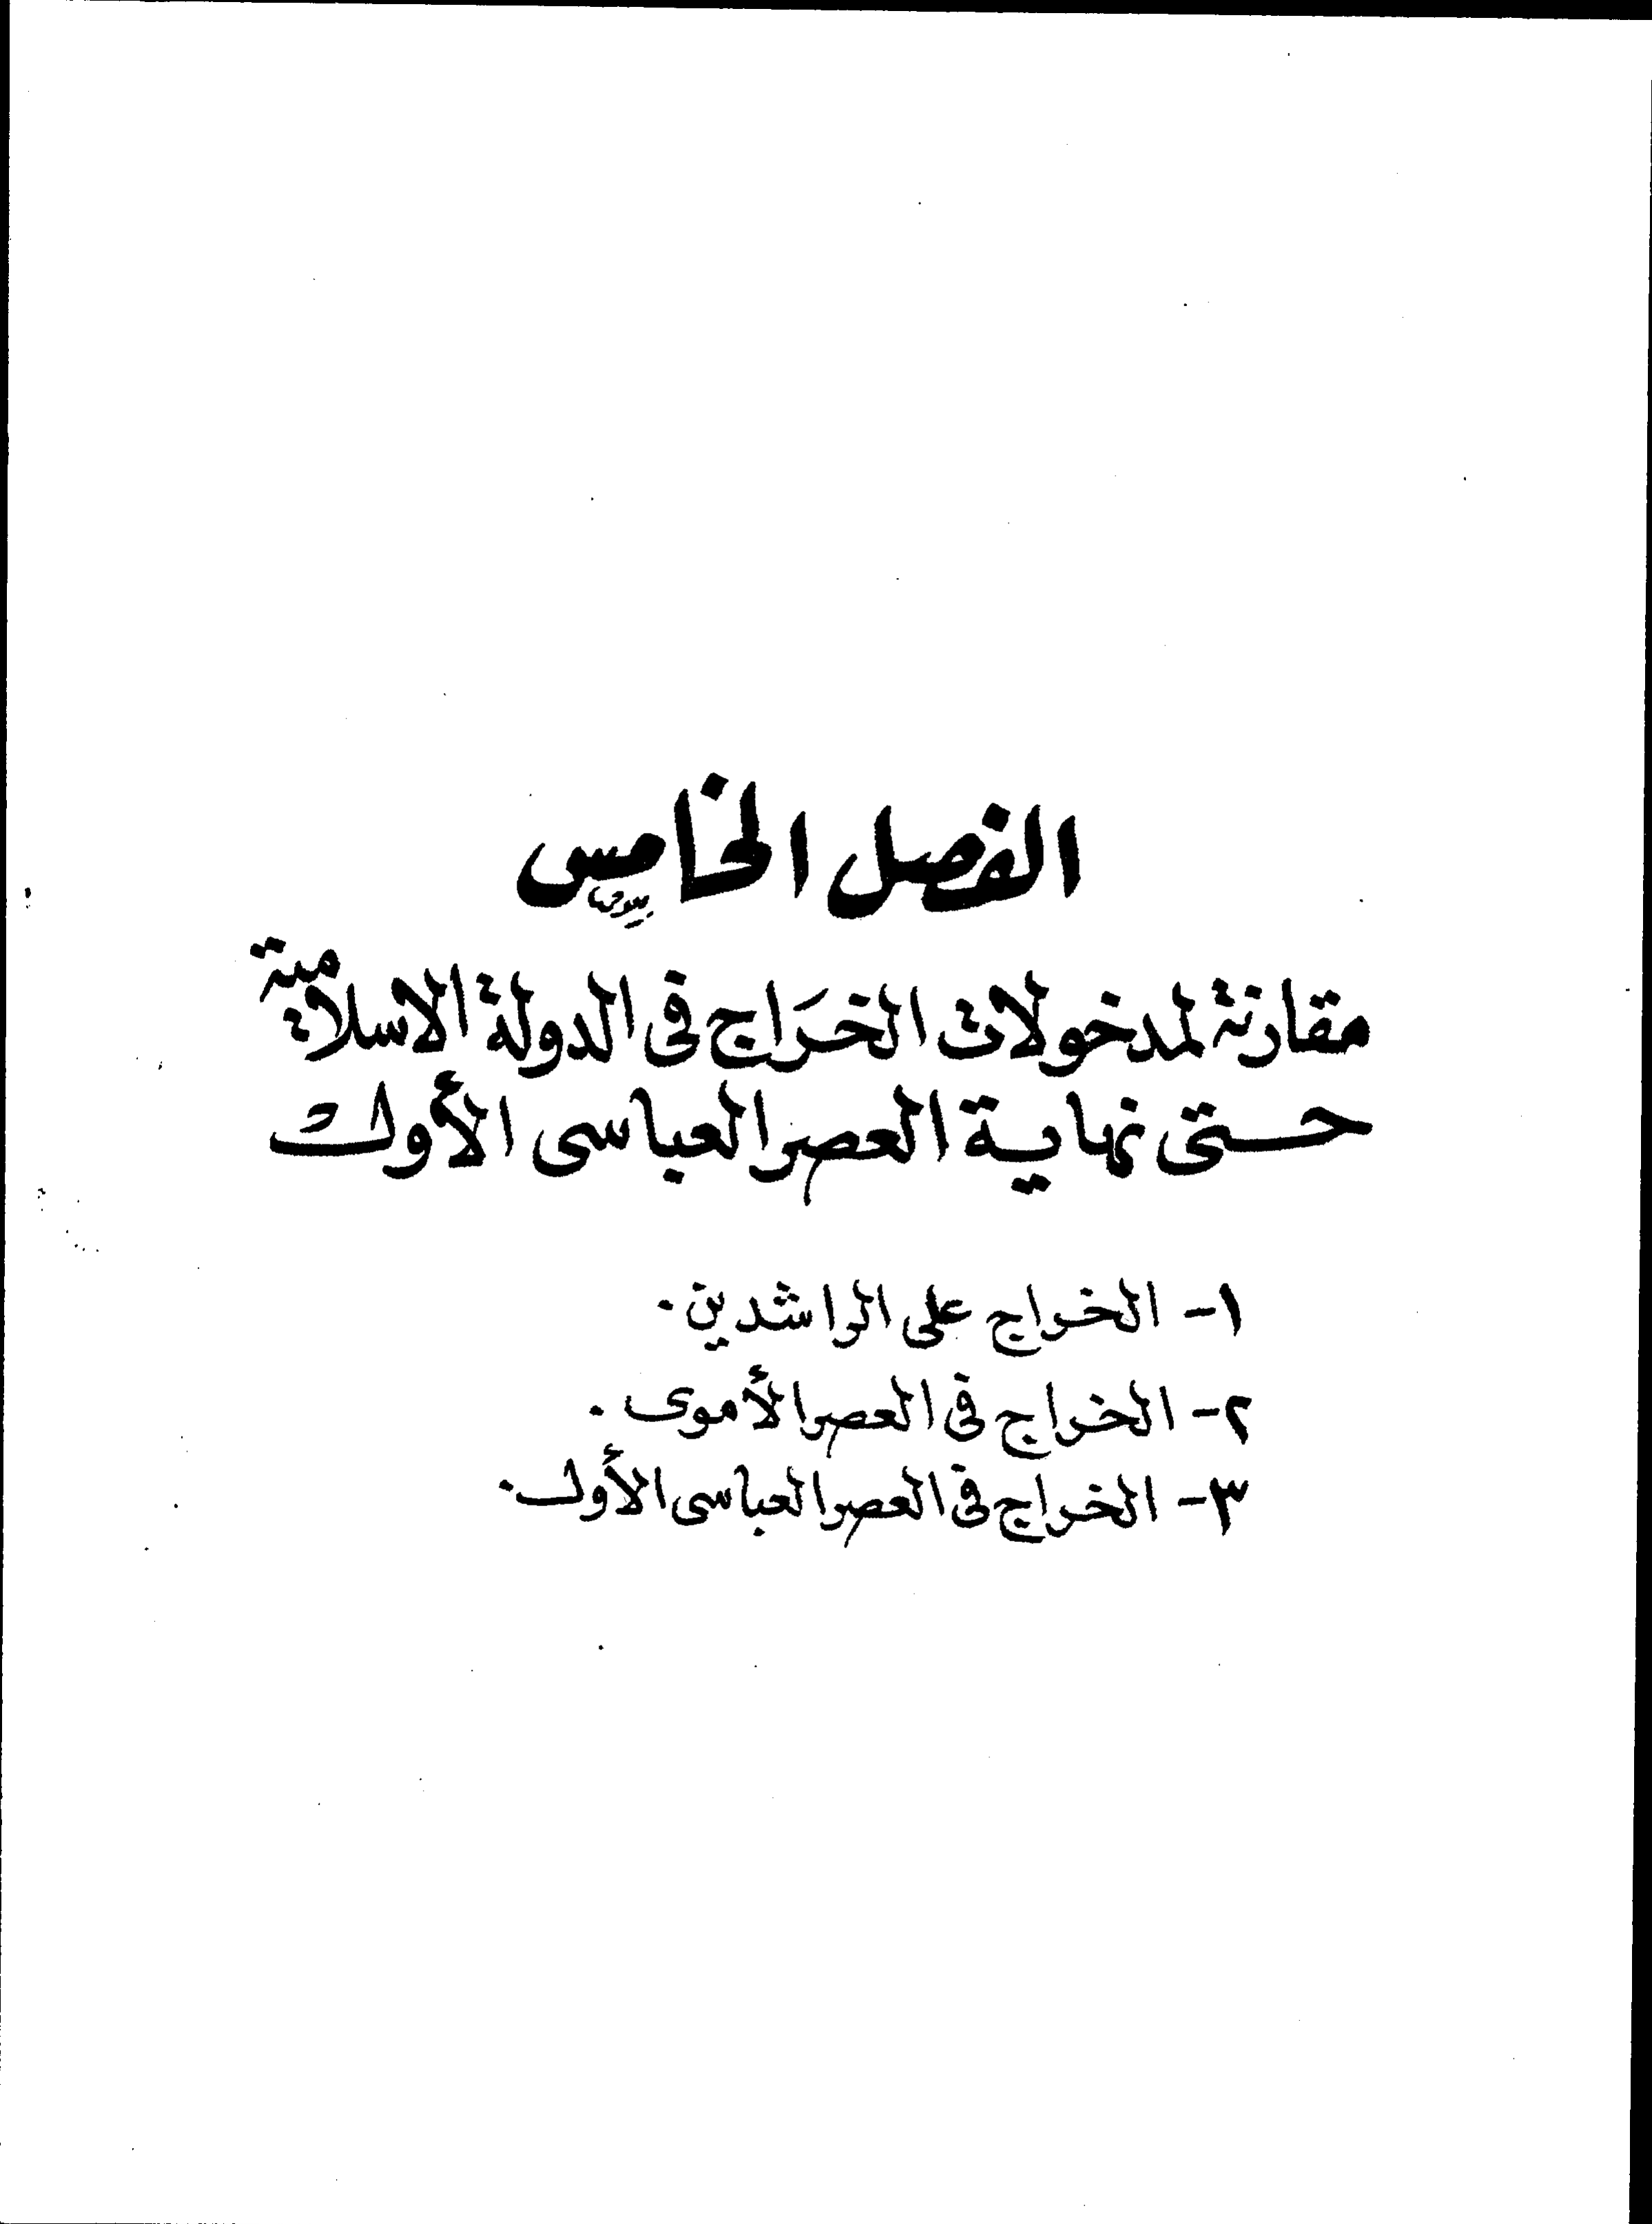 الفصل الخامس
مقارنة لمدخولات الخرَاج فى الدولة الاسلامية
حتى نهاية العصر العباسى الأول
١- الخراج على الراشدين.
٢- الخراج فى العصر الأموى.
٣- الخراج فى العصر العباسى الأول.